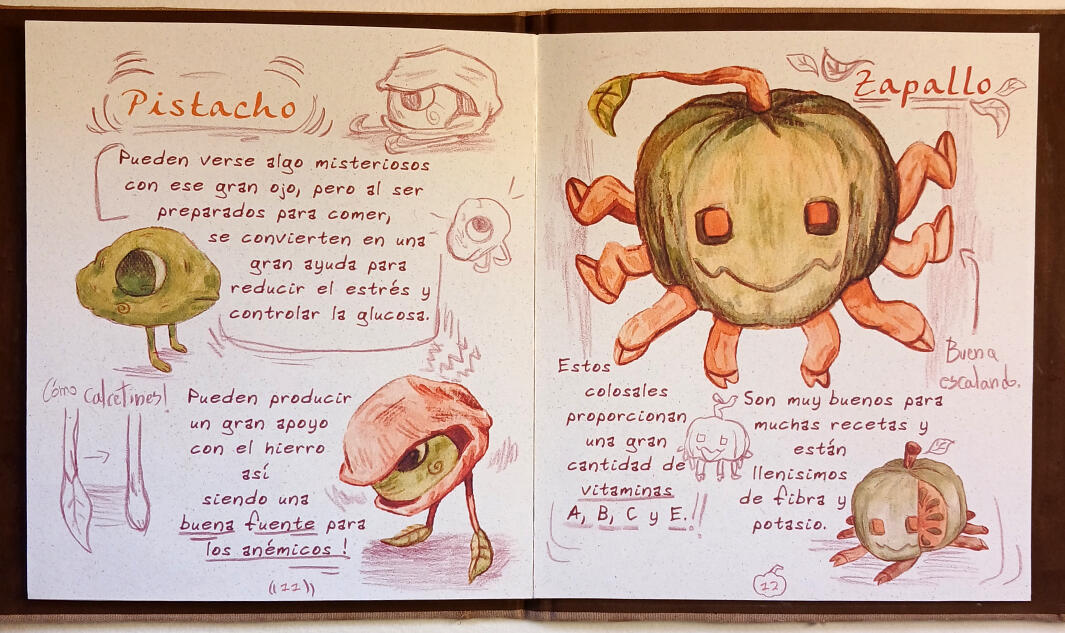 Pistacho
Pueden verse algo misteriosos
con ese gran ojo, pero al ser
preparados para comer,
se convierten en una
gran ayuda para
reducir el estrés y
controlar la glucosa.
Cómo calcetines!
Pueden producir
un gran apoyo
con el hierro
así
siendo una
buena fuente para
los anémicos!
11
Zapallo
Buena
escalando.
Estos
colosales
proporcionan
una gran
cantidad de
vitaminas
A, B, C y E.!!
Son muy buenos para
muchas recetas y
están
llenisimos
de fibra y
potasio.
12